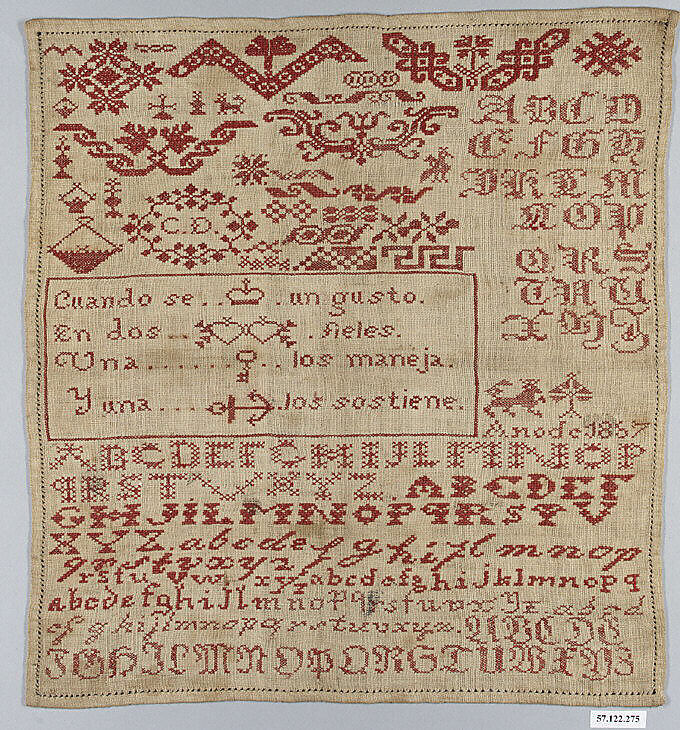 A B C D
E F G H
I K L M
N O P
C. D.
Q R S
T V U
X Y Z
Cuando se.. . un gusto.
En dos .. . fieles.
Una ....... .. los maneja.
Y una .... . los sostiene.
Ano de 1867
A B C D E F G H I J L M N O P
q R S T V X Y Z. A B C D E F
G H J I L M N O P q R S T V
X Y Z a b c d e f g h i j l m n o p
q r s t v x y z
r s t u v w x y z a b c d e f g h i j k l m n o p q
a b c d e f g h i j l m n o p q r s t u v x y z a b c d
e f g h i j l m n o p q r s t u v x y z. A B C D E
F G H I L M N O P Q R S T U V X Y Z
57.122.275